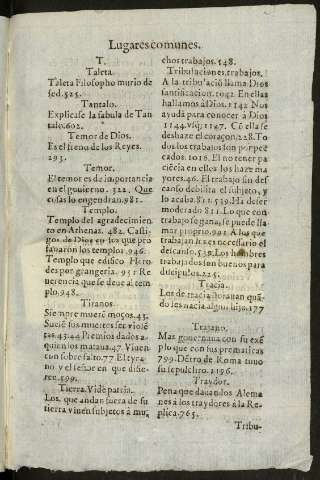 Lugares comunes.
T.
Taleta.
Taleta Filosopho murio de
sed. 525.
Tantalo.
Explicase la fabula de Tan
talo. 602.
Temor de Dios.
Es el freno de los Reyes.
293.
Temor.
El temor es de importancia
en el gouierno. 322. Que
cosas lo engendran. 981.
Templo.
Templo del agradecimien
to en Athenas. 482. Casti-
gos de Dios en los que pro
fanaron los templos. 946.
Templo que edifico Hero
des por grangeria. 931 Re
uerencia que se deue al tem
plo. 948.
Tiranos.
Siempre mueré moços. 43.
Sucié sus muertes ser violé
tas. 43. 44 Premios dados a
quien los mataua. 47 Viuen
con sobresalto. 77 El tyra
no y el señor en que difie-
ren. 599.
Tierra. Vide patria.
Los que andan fuera de su
tierra viuen subjetos à mu,
chos trabajos. 548.
Tribulaciones. trabajos.
A la tribulació llama Dios
santificacion. 1042 En ellas
hallamos à Dios. 1142 Nos
ayuda para conocer à Dios
1144. vsq; 1147. Có ella se
deshaze el coraçon. 228. To
dos los trabajos son porpe
cados. 1016. El no tener pa
ciencia en ellos los haze ma
yores. 46. El trabajo sin des
canso debilita el subjeto, y
lo acaba. 811. 539. Ha de ser
moderado 811. Lo que con
trabajo se gana, se puede lla
mar proprio. 991. A los que
trabajan les es necessario el
descanso. 539. Los hombres
trabajados son buenos para
discipulos. 225.
Tracia.
Los de tracia llorauan quá
do les nacia algun hijo. 177
Trajano.
Mas gouernaua con su exé
plo que con sus prematicas
799. Détro de Roma tuuo
su sepulchro. 1196.
Traydor.
Pena que dauan los Alema
nes à los traydores à la Re-
plica. 765.
Tribu-